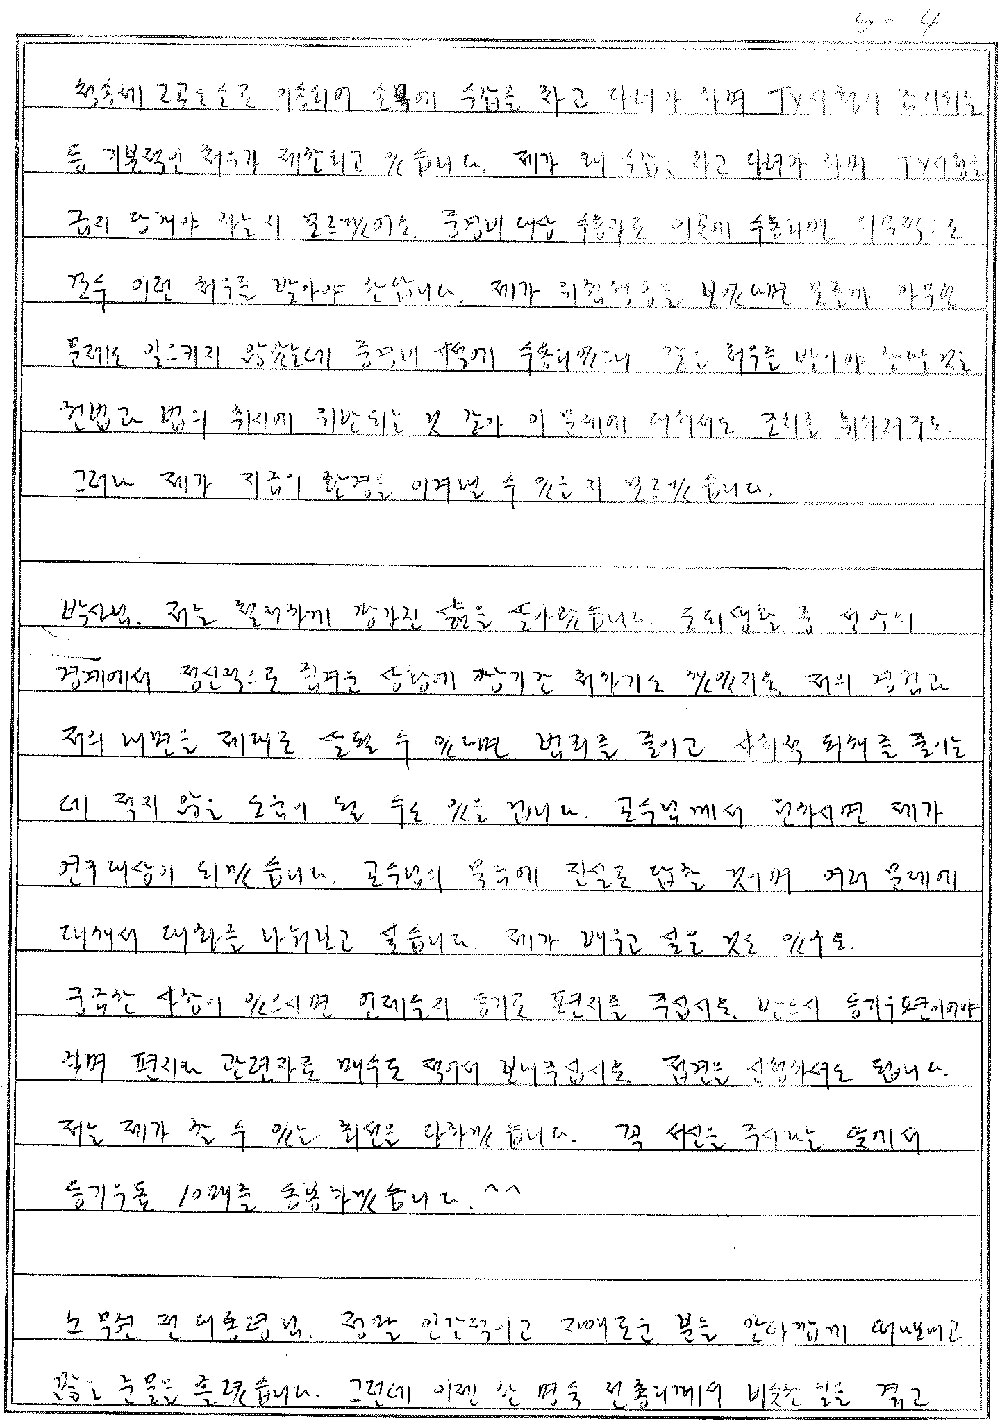 5-4
손목에 수갑을 차고 다녀야 하며 TV시청이
등 기본적인 처우가 제한되고 있습니다. 제가 왜 수갑을 차고 다녀야 하며 TV시청을
금지 당해야 하는지 모르겠어요. 중경비대상 수용자로 이곳에 수용되면
전부 이런 처우를 받아야 한답니다. 제가 위험성을 보였다면 모를까 아무런
문제도 일으키지 않았는데 중경비 시설에 수용되었으니 같은 처우를 받아야 한다는 것은
헌법과 법의 취지에 위반되는 것 같아 이 문제에 대해서도 조치를 취하려구요.
그러나 제가 지금의 환경을 이겨낼 수 있을지 모르겠습니다.
박사님. 저는 철저하게 망가진 삶을 살아왔습니다. 도피생활 중
경계에서 정신적으로 힘겨운 상황에 장기간 처하기도 했었지요. 저의 경험과
저의 내면을 제대로 살필 수 있다면 범죄를 줄이고 사회적 피해를 줄이는
데 적지 않은 도움이 될 수도 있을 겁니다. 교수님께서 원하시면 제가
연구대상이 되겠습니다. 교수님의 물음에 진실로 답할 것이며 여러 문제에
대해서 대화를 나눠보고 싶습니다. 제가 배우고 싶은 것도 있구요.
궁금한 사항이 있으시면 언제든지 등기로 편지를 주십시오. 반드시 등기우편이어야
하며 편지와 관련자료 매수도 적어서 보내주십시오. 접견을 신청하셔도 됩니다.
저는 제가 할 수 있는 최선을 다하겠습니다. 꼭 서신을 주시라는 뜻에서
등기우표 10매를 동봉하겠습니다. ^^
노무현 전 대통령님. 정말 인간적이고 자애로운 분을 안타깝게 떠나보내고
많은 눈물을 흘렸습니다. 그런데 이젠 한명숙 전총리께서 비슷한 일을 겪고